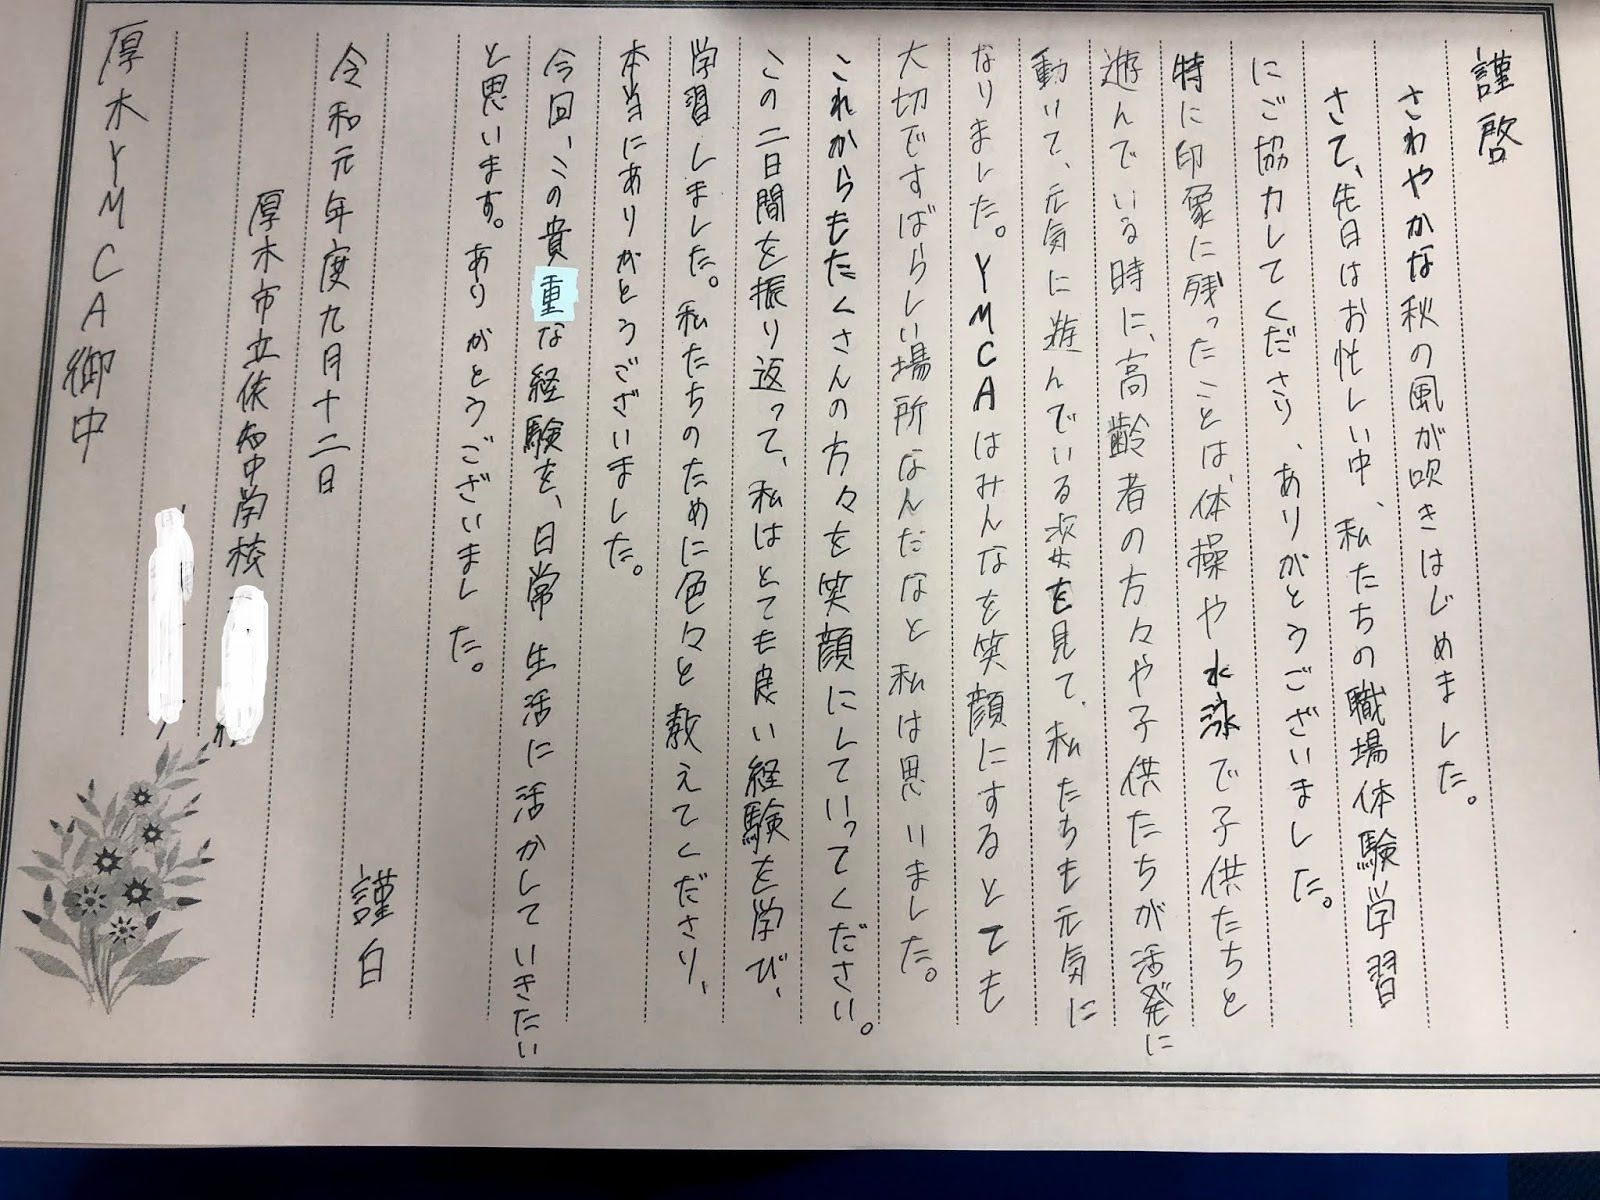 謹啓
さわやかな秋の風が吹きはじめました。
さて、先日はお忙しい中、私たちの職場体験学習
にご協力してくださり、ありがとうございました。
特に印象に残ったことは、体操や水泳で子供たちと
遊んでいる時に、高齢者の方々や子供たちが活発に
動いて、元気に遊んでいる姿を見て、私たちも元気に
なりました。YMCAはみんなを笑顔にするとても
大切ですばらしい場所なんだなと私は思いました。
これからもたくさんの方々を笑顔にしていってください。
この二日間を振り返って、私はとても良い経験を学び、
学習しました。私たちのために色々と教えてくださり、
本当にありがとうございました。
今回、この貴重な経験を、日常生活に活かしていきたい
と思います。ありがとうございました。
謹白
令和元年度九月十二日
厚木市立依知中学校
厚木YMCA御中